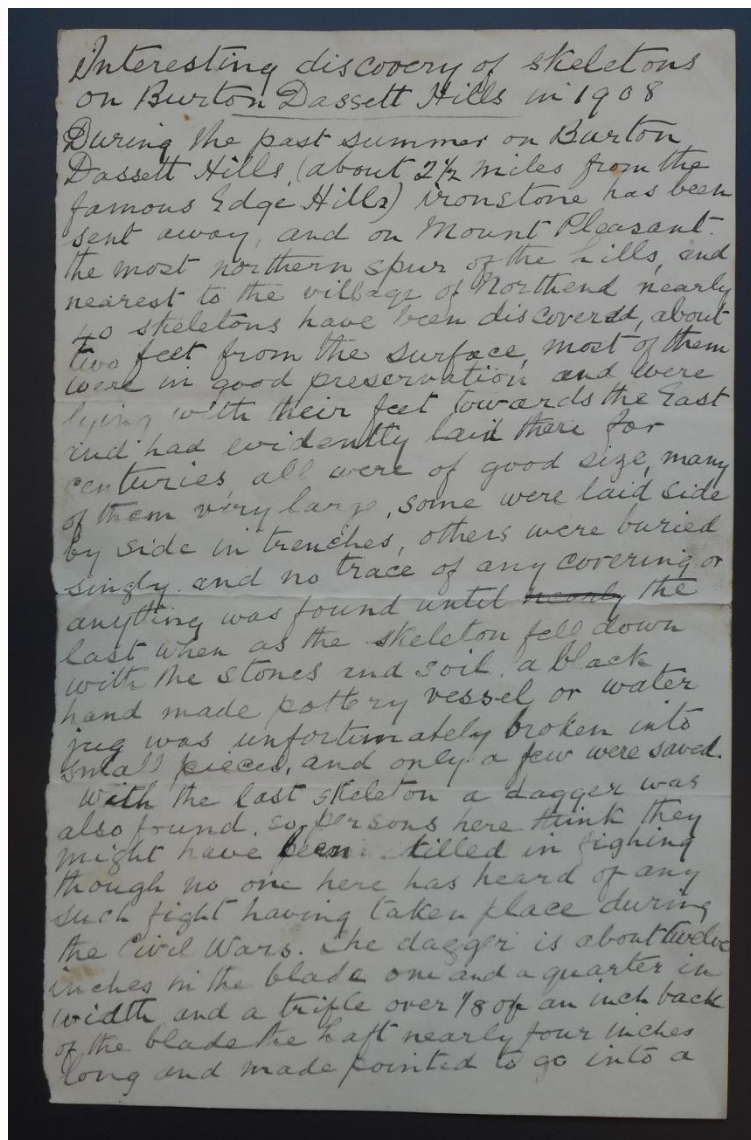 Interesting discovery of skeletons
on Burton Dassett Hills in 1908
During the past summer on Burton
Dassett Hills, (about 2½ miles from the
famous Edge Hills) ironstone has been
sent away, and on Mount Pleasant.
the most northern spur of the hills, and
nearest to the village of Northend nearly
40 skeletons have been discovered, about
two feet from the surface, most of them
were in good preservation and were
lying with their feet towards the East
and had evidently laid there for
centuries, all were of good size, many
of them very large, some were laid side
by side in trenches, others were buried
singly. and no trace of any covering or
anything was found until nearly the
last when as the skeleton fell down
with the stones and soil. a black
hand made pottery vessel or water
jug was unfortunately broken into
small pieces, and only a few were saved.
With the last skeleton a dagger was
also found. so persons here think they
might have been killed in fighing
though no one here has heard of any
such fight having taken place during
the Civil Wars. The dagger is about twelve
inches in the blade one and a quarter in
width and a trifle over 1/8 of an inch back
of the blade the haft nearly four inches
long and made pointed to go into a